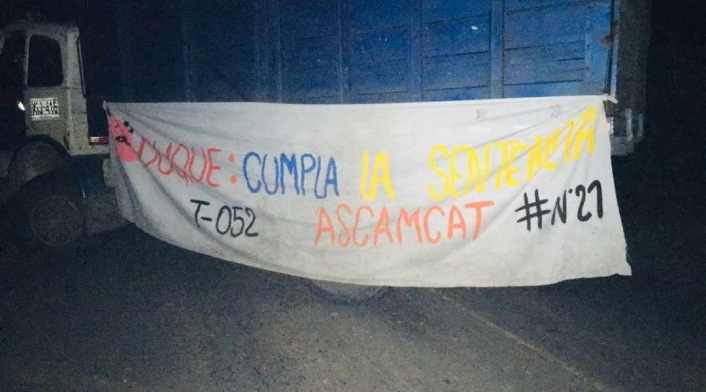 DUQUE: CUMPLA LA SENTENCIA
T-052 ASCAMCAT #N°21